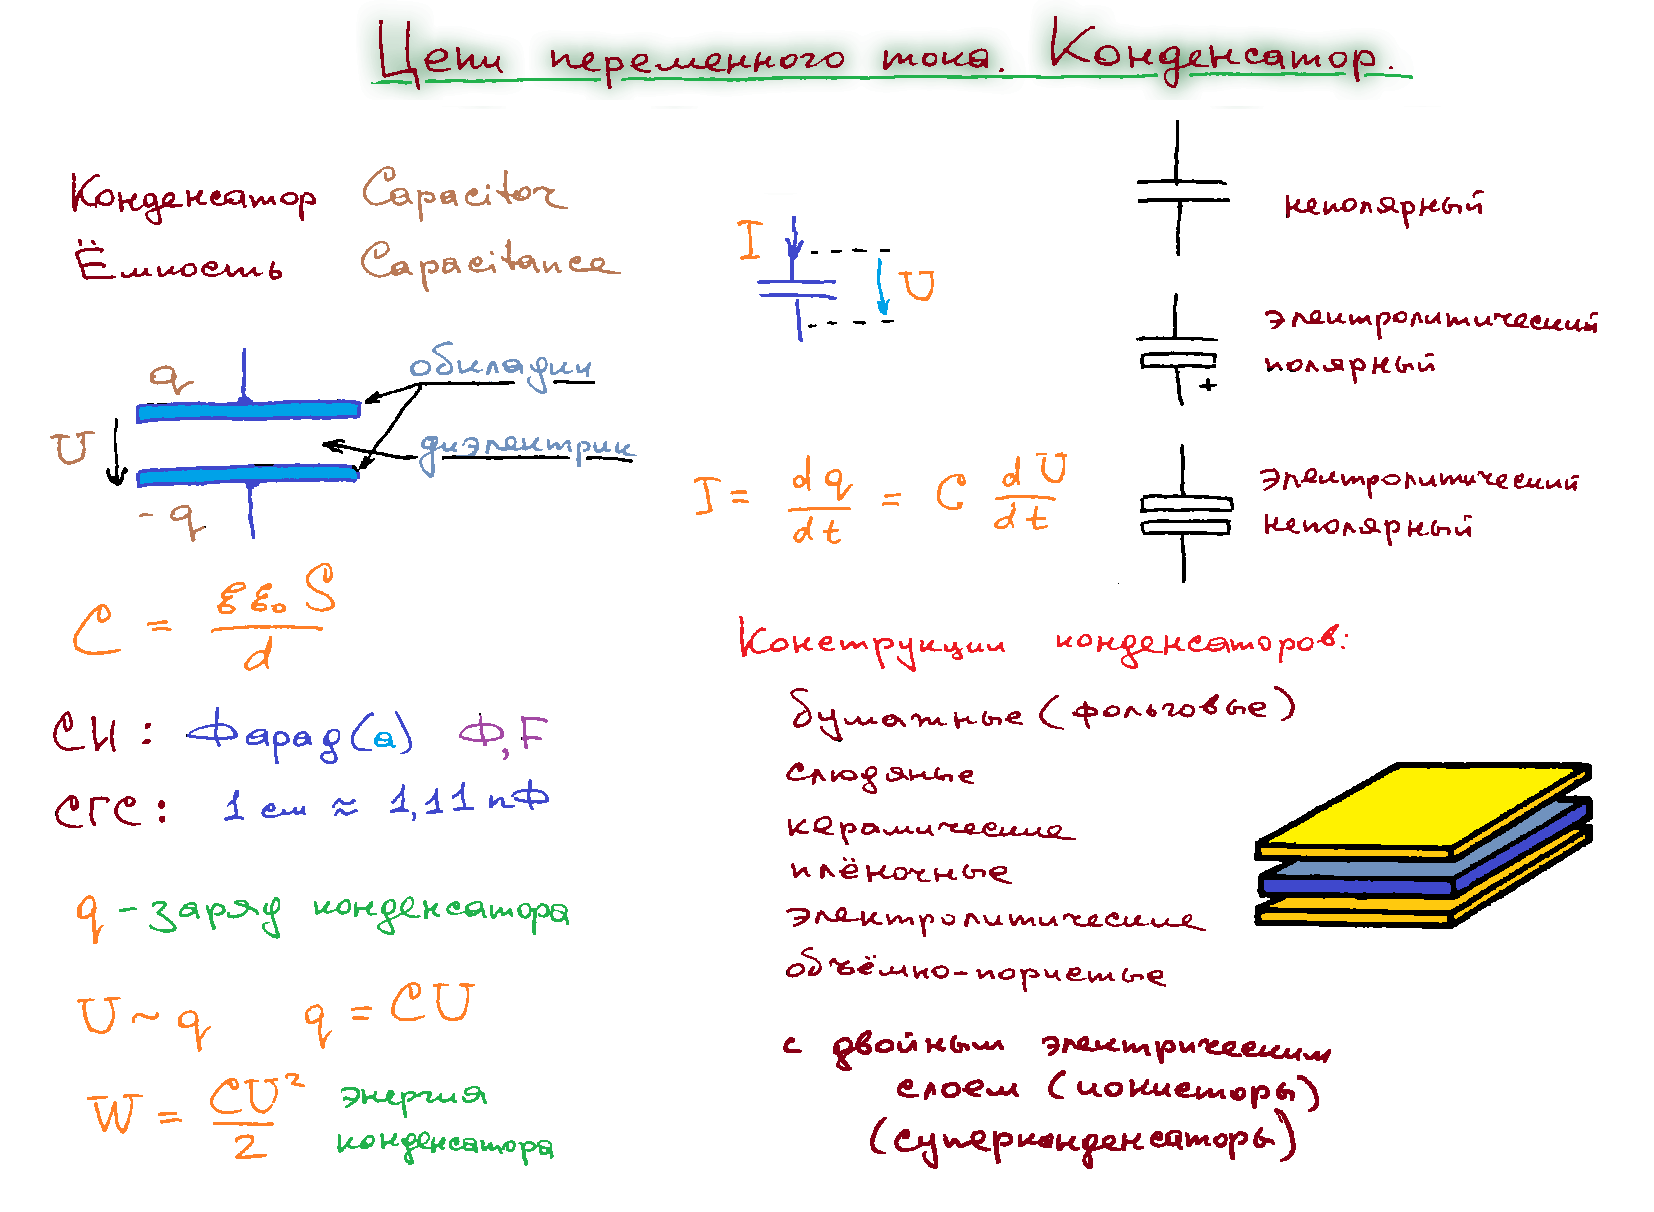 Цепи переменного тока. Конденсатор.
Конденсатор Capacitor
Ёмкость Capacitance
q
U
-q
обкладки
диэлектрик
C = εε₀S / d
СИ: Фарад(а) Ф, F
СГС: 1 см ≈ 1,11 пФ
q - заряд конденсатора
U ~ q q = CU
W = CU² / 2 энергия
конденсатора
I
U
I = dq/dt = C dU/dt
неполярный
электролитический
полярный
+
электролитический
неполярный
Конструкции конденсаторов:
бумажные (фольговые)
слюдяные
керамические
плёночные
электролитические
объёмно-пористые
с двойным электрическим
слоем (ионисторы)
(суперконденсаторы)